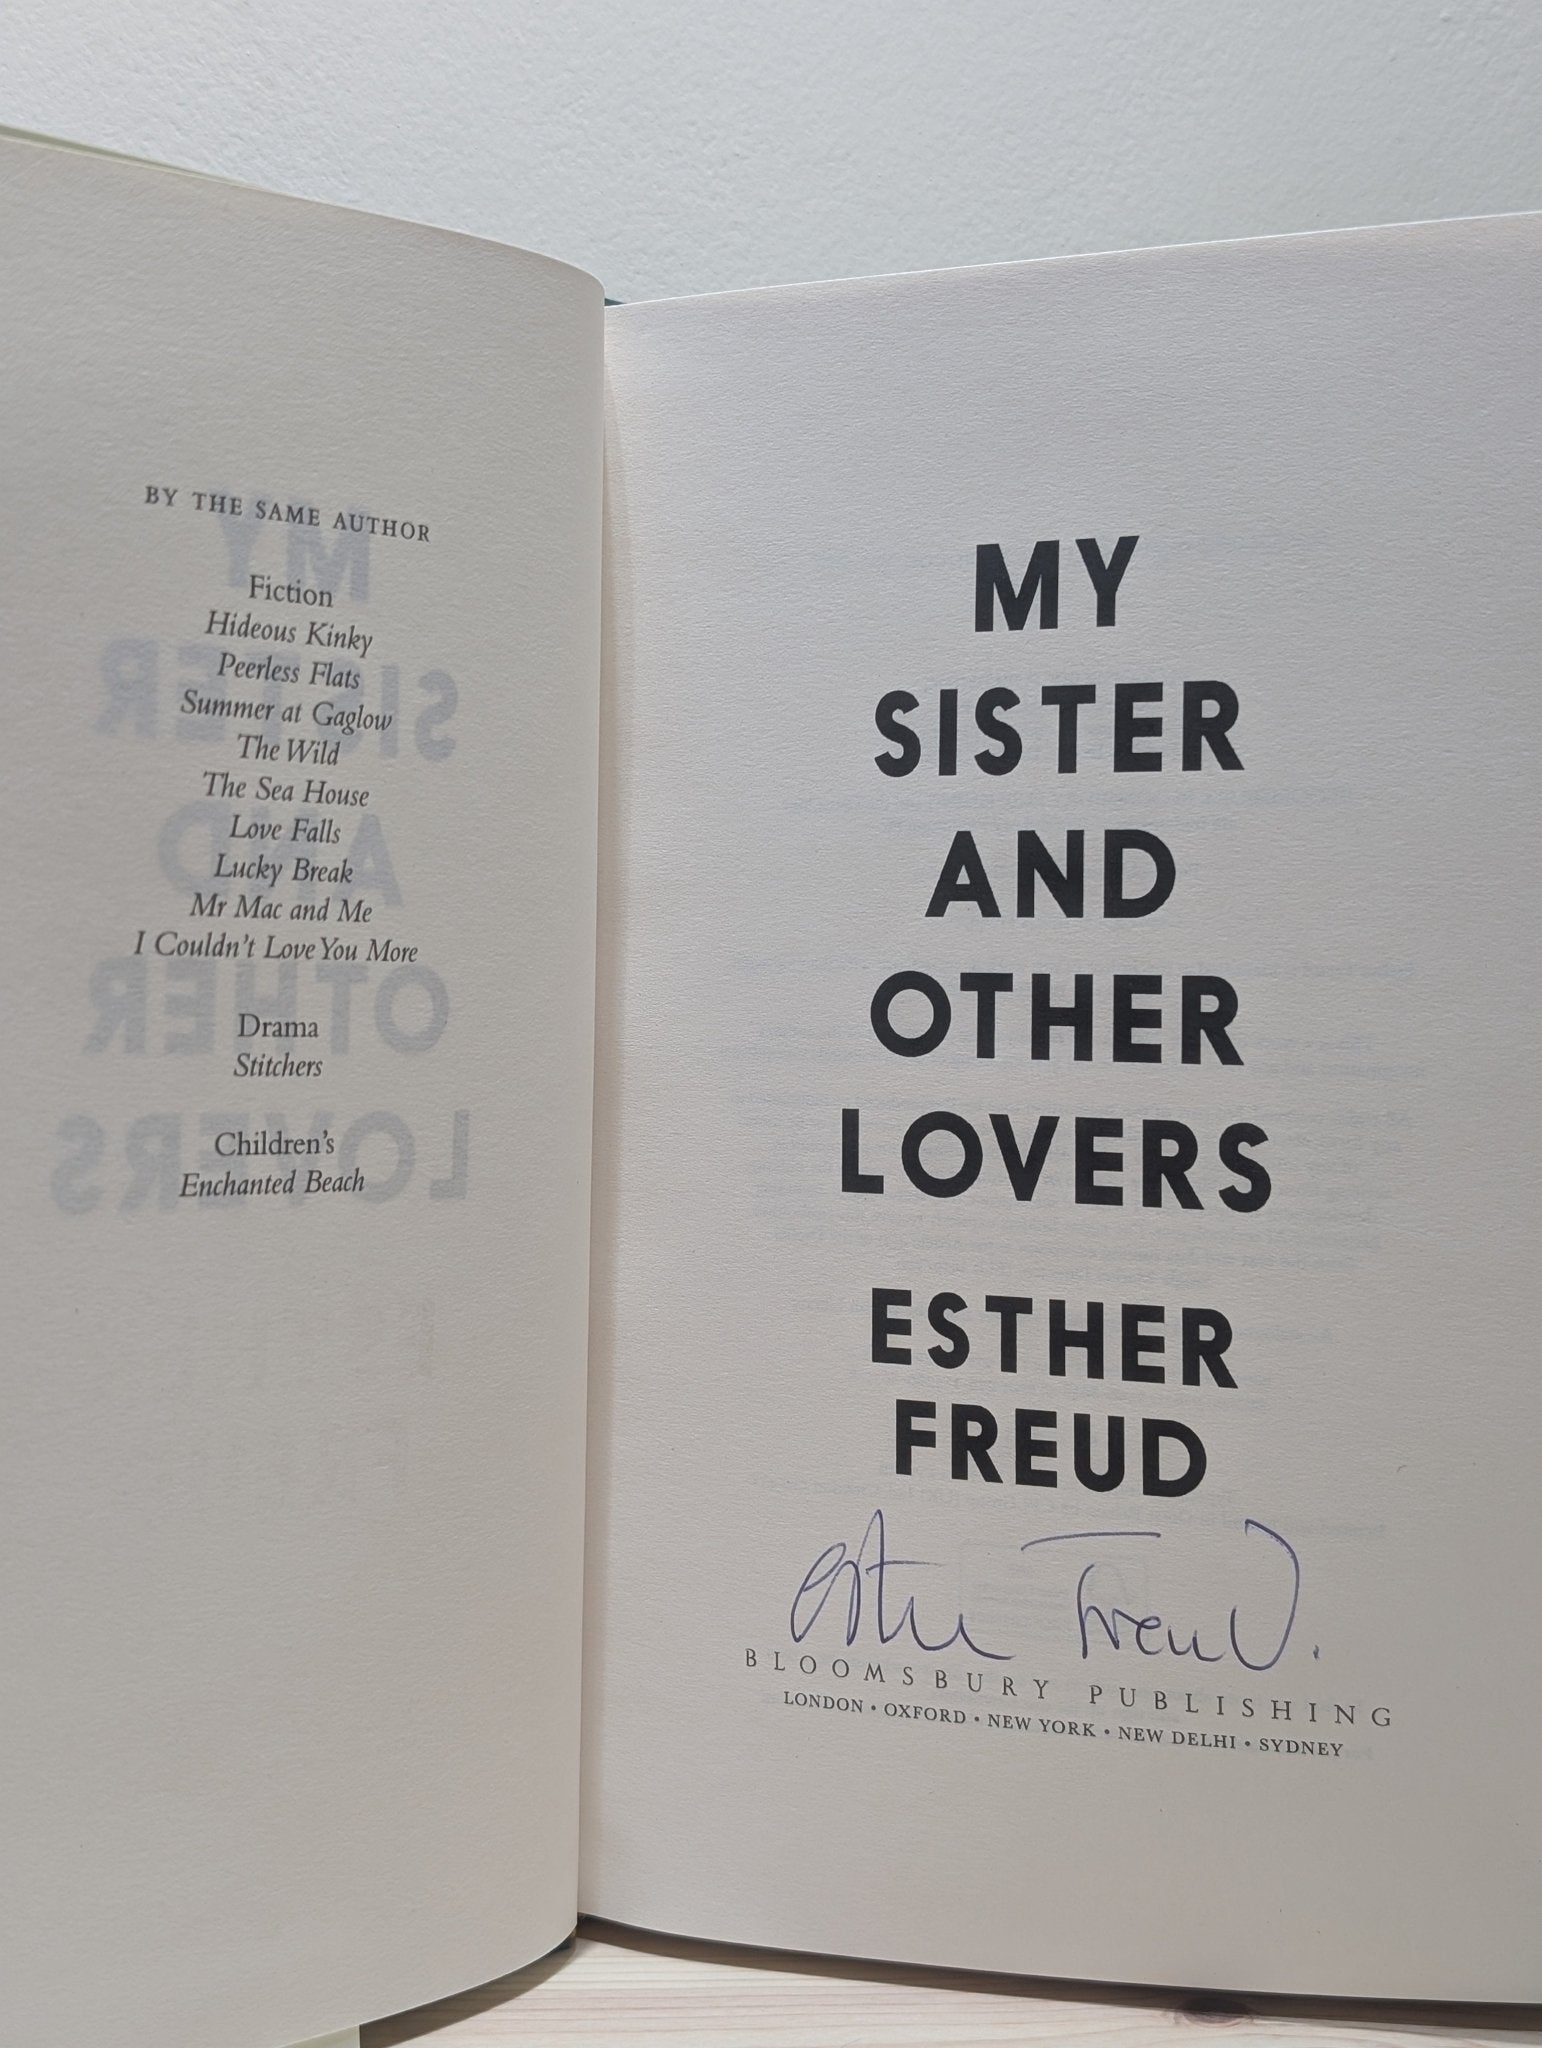 BY THE SAME AUTHOR
Fiction
Hideous Kinky
Peerless Flats
Summer at Gaglow
The Wild
The Sea House
Love Falls
Lucky Break
Mr Mac and Me
I Couldn't Love You More
Drama
Stitchers
Children's
Enchanted Beach
MY
SISTER
AND
OTHER
LOVERS
ESTHER
FREUD
Esther Freud.
BLOOMSBURY PUBLISHING
LONDON • OXFORD • NEW YORK • NEW DELHI • SYDNEY